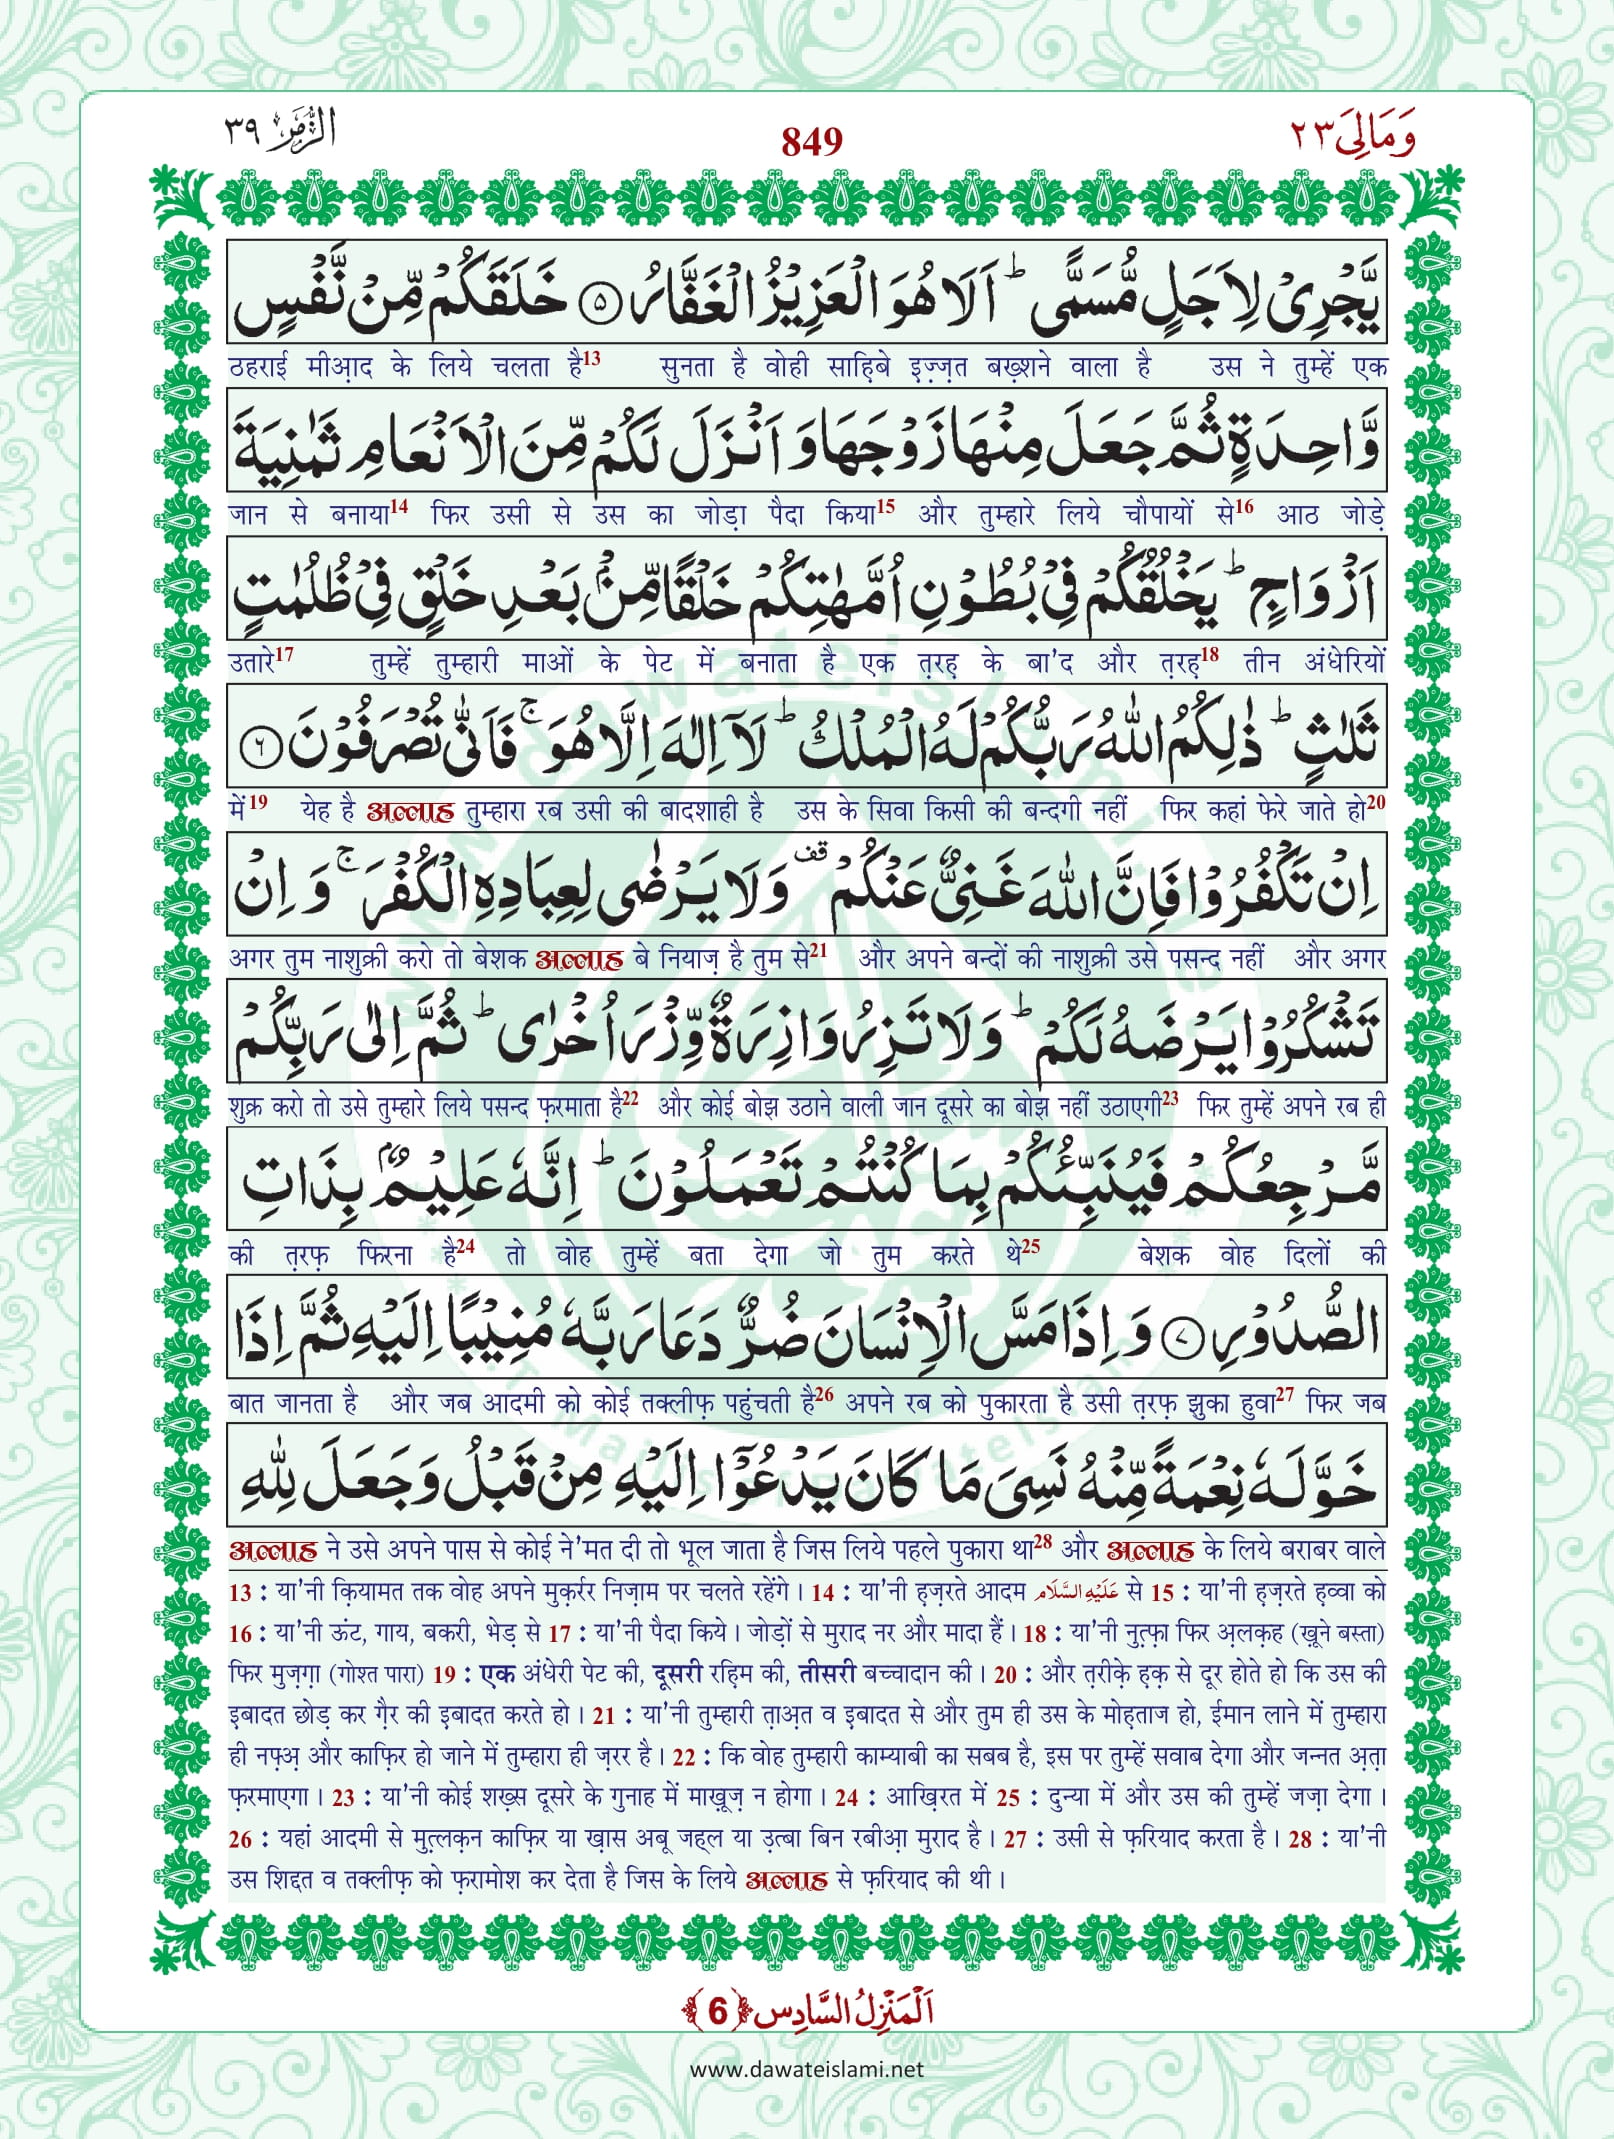 وَمَالِیَ ٢٣
849
الزُّمَر ٣٩
یَّجْرِیْ لِاَجَلٍ مُّسَمًّى ؕ اَلَا هُوَ الْعَزِیْزُ الْغَفَّارُ ۝۵ خَلَقَكُمْ مِّنْ نَّفْسٍ
ठहराई मीआ़द के लिये चलता है13 सुनता है वोही साह़िबे इ़ज़्ज़त बख़्शने वाला है उस ने तुम्हें एक
وَّاحِدَةٍ ثُمَّ جَعَلَ مِنْهَا زَوْجَهَا وَ اَنْزَلَ لَكُمْ مِّنَ الْاَنْعَامِ ثَمٰنِیَةَ
जान से बनाया14 फिर उसी से उस का जोड़ा पैदा किया15 और तुम्हारे लिये चौपायों से16 आठ जोड़े
اَزْوَاجٍ ؕ یَخْلُقُكُمْ فِیْ بُطُوْنِ اُمَّهٰتِكُمْ خَلْقًا مِّنْۢ بَعْدِ خَلْقٍ فِیْ ظُلُمٰتٍ
उतारे17 तुम्हें तुम्हारी माओं के पेट में बनाता है एक त़रह़ के बा'द और त़रह़18 तीन अंधेरियों
ثَلٰثٍ ؕ ذٰلِكُمُ اللّٰهُ رَبُّكُمْ لَهُ الْمُلْكُ ؕ لَاۤ اِلٰهَ اِلَّا هُوَ ۚ فَاَنّٰى تُصْرَفُوْنَ ۝۶
में19 येह है अल्लाह तुम्हारा रब उसी की बादशाही है उस के सिवा किसी की बन्दगी नहीं फिर कहां फेरे जाते हो20
اِنْ تَكْفُرُوْا فَاِنَّ اللّٰهَ غَنِیٌّ عَنْكُمْ قف وَلَا یَرْضٰى لِعِبَادِهِ الْكُفْرَ ۚ وَ اِنْ
अगर तुम नाशुक्री करो तो बेशक अल्लाह बे नियाज़ है तुम से21 और अपने बन्दों की नाशुक्री उसे पसन्द नहीं और अगर
تَشْكُرُوْا یَرْضَهُ لَكُمْ ؕ وَلَا تَزِرُ وَازِرَةٌ وِّزْرَ اُخْرٰى ؕ ثُمَّ اِلٰى رَبِّكُمْ
शुक्र करो तो उसे तुम्हारे लिये पसन्द फ़रमाता है22 और कोई बोझ उठाने वाली जान दूसरे का बोझ नहीं उठाएगी23 फिर तुम्हें अपने रब ही
مَّرْجِعُكُمْ فَیُنَبِّئُكُمْ بِمَا كُنْتُمْ تَعْمَلُوْنَ ؕ اِنَّهٗ عَلِیْمٌۢ بِذَاتِ
की त़रफ़ फिरना है24 तो वोह तुम्हें बता देगा जो तुम करते थे25 बेशक वोह दिलों की
الصُّدُوْرِ ۝۷ وَ اِذَا مَسَّ الْاِنْسَانَ ضُرٌّ دَعَا رَبَّهٗ مُنِیْبًا اِلَیْهِ ثُمَّ اِذَا
बात जानता है और जब आदमी को कोई तक्लीफ़ पहुंचती है26 अपने रब को पुकारता है उसी त़रफ़ झुका हुवा27 फिर जब
خَوَّلَهٗ نِعْمَةً مِّنْهُ نَسِیَ مَا كَانَ یَدْعُوْۤا اِلَیْهِ مِنْ قَبْلُ وَ جَعَلَ لِلّٰهِ
अल्लाह ने उसे अपने पास से कोई ने'मत दी तो भूल जाता है जिस लिये पहले पुकारा था28 और अल्लाह के लिये बराबर वाले
13 : या'नी क़ियामत तक वोह अपने मुक़र्रर निज़ाम पर चलते रहेंगे । 14 : या'नी ह़ज़रते आदम عَلَیْهِ السَّلَام से 15 : या'नी ह़ज़रते ह़व्वा को
16 : या'नी ऊंट, गाय, बकरी, भेड़ से 17 : या'नी पैदा किये । जोड़ों से मुराद नर और मादा हैं । 18 : या'नी नुत़्फ़ा फिर अ़लक़ह (ख़ूने बस्ता)
फिर मुज़्ग़ा (गोश्त पारा) 19 : एक अंधेरी पेट की, दूसरी रह़िम की, तीसरी बच्चादान की । 20 : और त़रीक़े ह़क़ से दूर होते हो कि उस की
इबादत छोड़ कर ग़ैर की इबादत करते हो । 21 : या'नी तुम्हारी त़ाअ़त व इबादत से और तुम ही उस के मोह़ताज हो, ईमान लाने में तुम्हारा
ही नफ़्अ़ और काफ़िर हो जाने में तुम्हारा ही ज़रर है । 22 : कि वोह तुम्हारी काम्याबी का सबब है, इस पर तुम्हें सवाब देगा और जन्नत अ़त़ा
फ़रमाएगा । 23 : या'नी कोई शख़्स दूसरे के गुनाह में माख़ूज़ न होगा । 24 : आख़िरत में 25 : दुन्या में और उस की तुम्हें जज़ा देगा ।
26 : यहां आदमी से मुत़्लक़न काफ़िर या ख़ास अबू जह्ल या उ़त्बा बिन रबीआ़ मुराद है । 27 : उसी से फ़रियाद करता है । 28 : या'नी
उस शिद्दत व तक्लीफ़ को फ़रामोश कर देता है जिस के लिये अल्लाह से फ़रियाद की थी ।
اَلْمَنْزِلُ السَّادِس ﴿6﴾
www.dawateislami.net